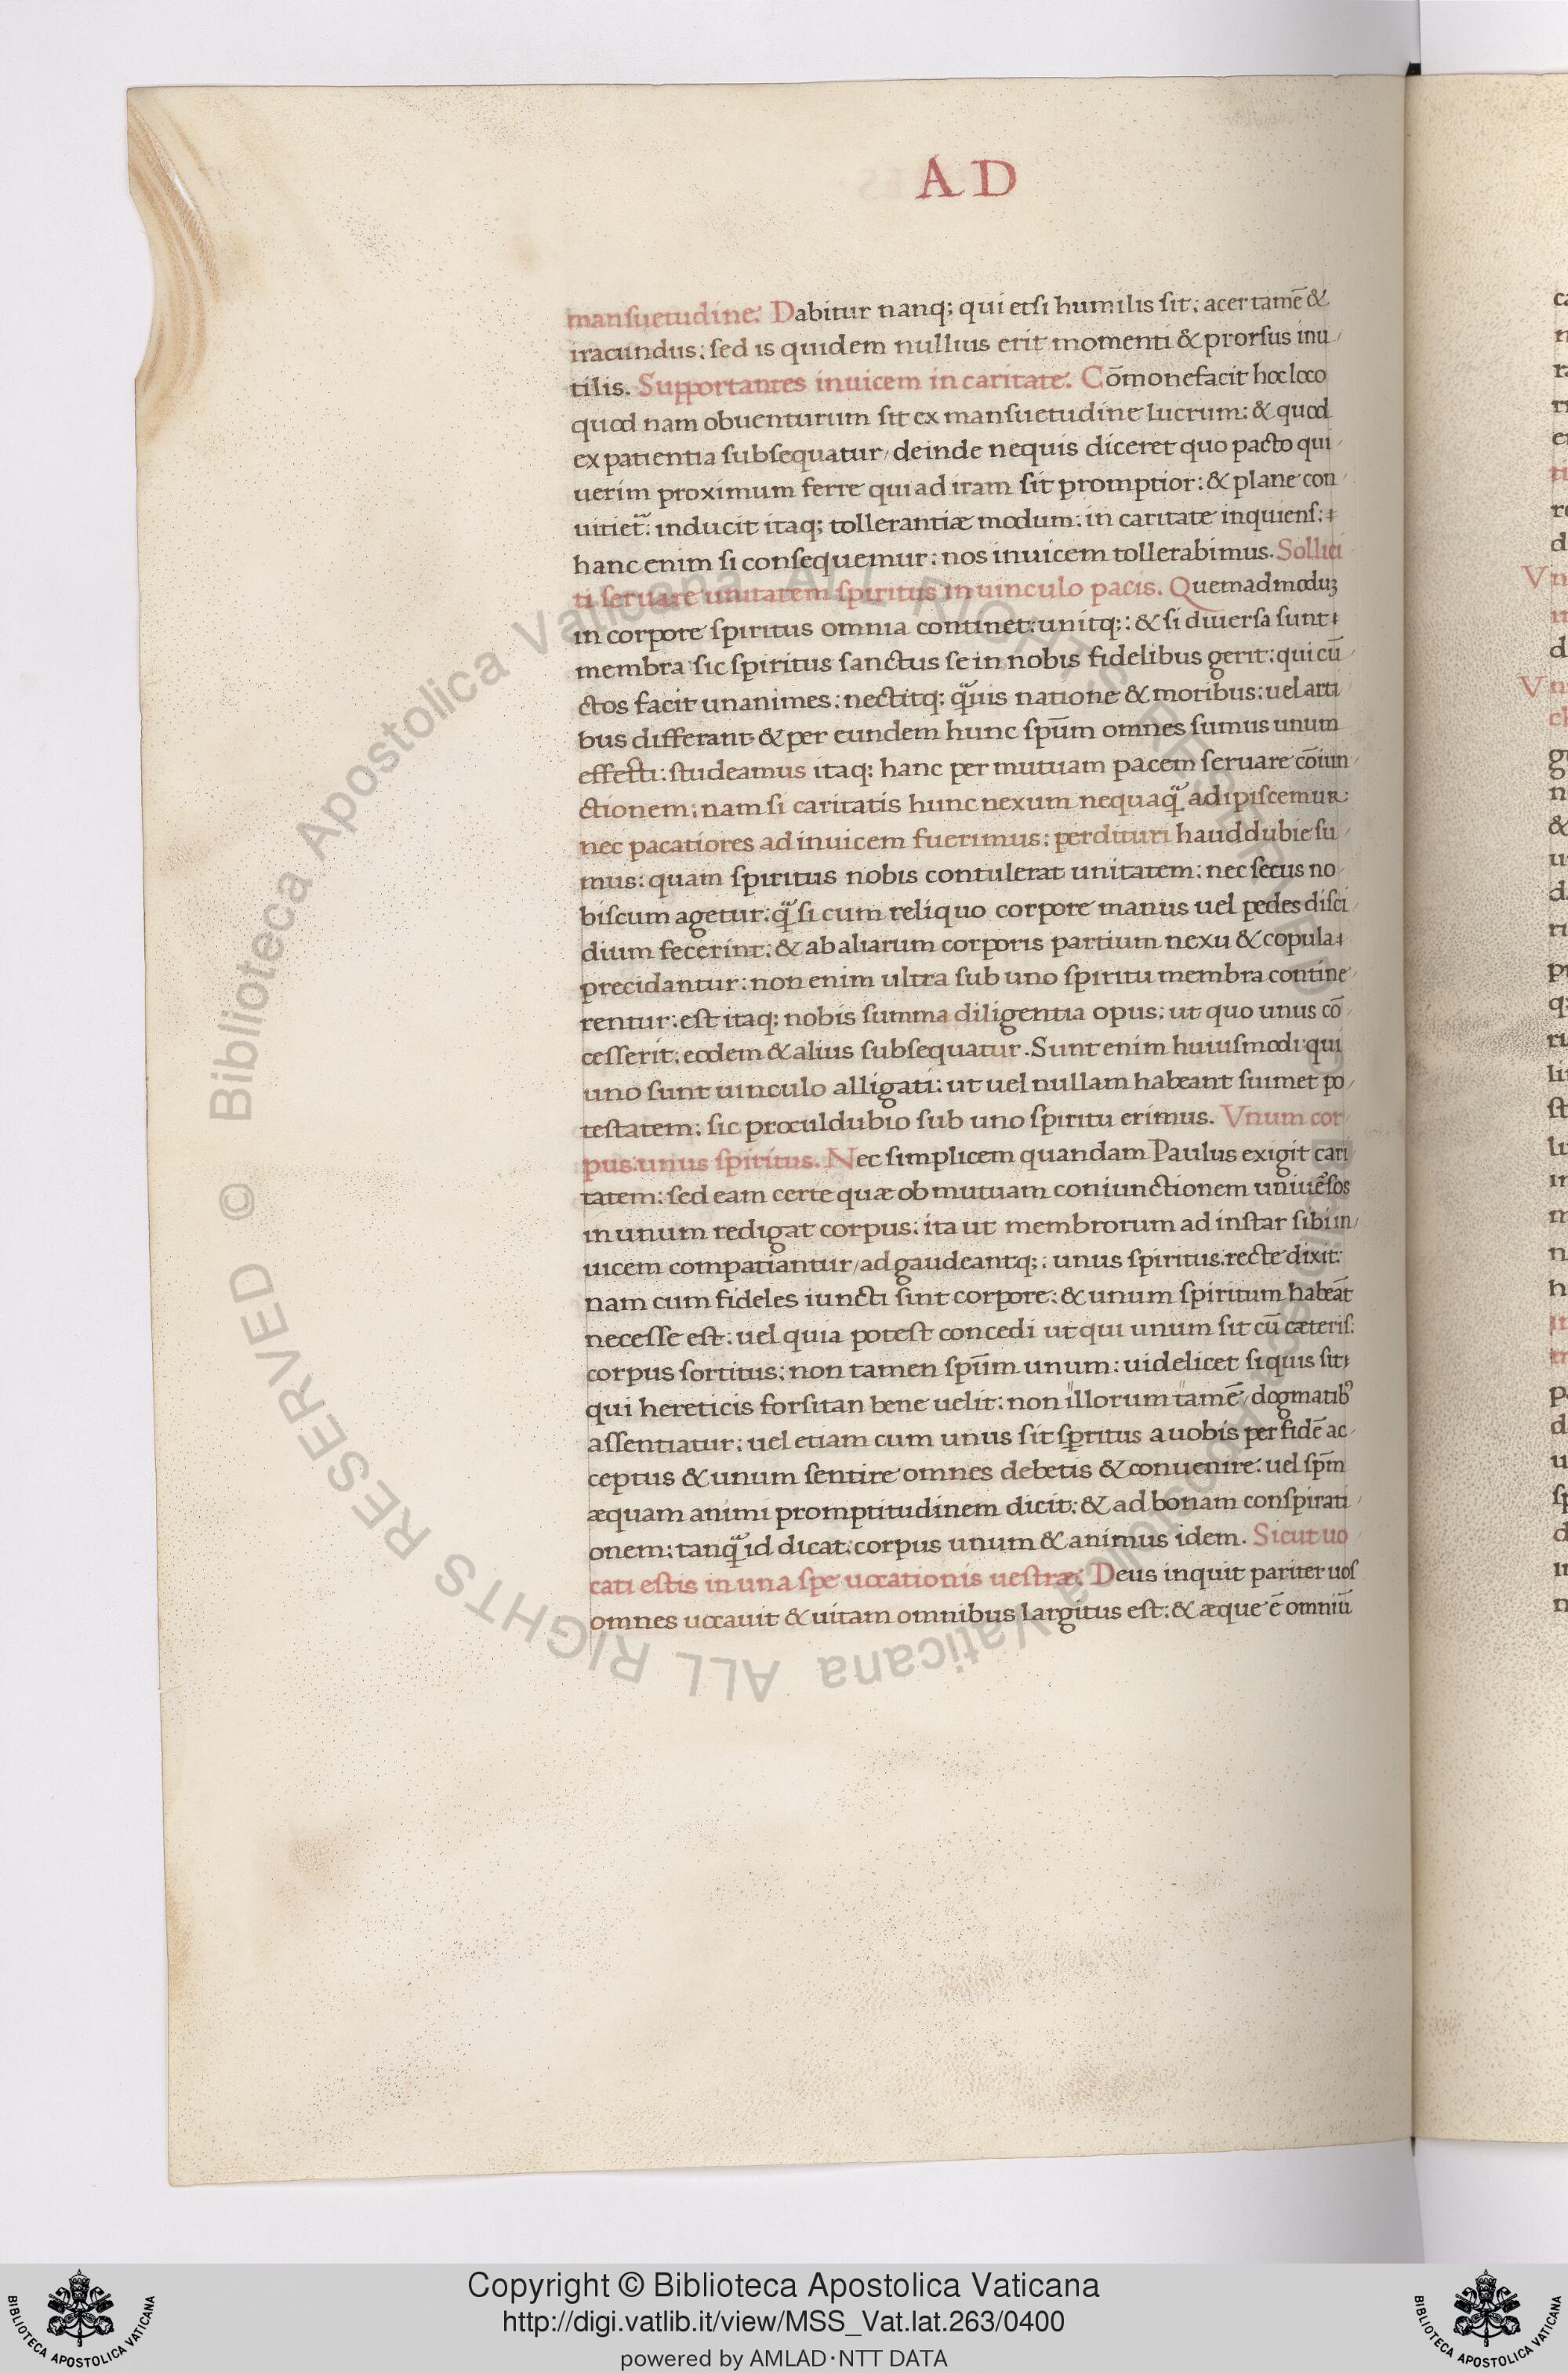 A D
mansuetudine. Dabitur nanq; qui etsi humilis sit; acer tamē &
iracundus; sed is quidem nullius erit momenti & prorsus inu/
tilis. Supportantes inuicem in caritate. Cōmonefacit hoc loco
quod nam obuenturum sit ex mansuetudine lucrum: & quod
ex patientia subsequatur, deinde nequis diceret quo pacto qui/
uerim proximum ferre qui ad iram sit promptior: & plane con/
hanc enim si consequemur: nos inuicem tollerabimus. Sollici
ti seruare unitatem spiritus in uinculo pacis. Quemadmoduꝫ
in corpore spiritus omnia continet: unitq;: & si diuersa sunt
membra sic spiritus sanctus se in nobis fidelibus gerit: qui cū/
ctos facit unanimes: nectitq; q̃uis natione & moribus: uel arti/
bus differant & per eundem hunc spūm omnes sumus unum
effecti: studeamus itaq; hanc per mutuam pacem seruare cōiun/
ctionem; nam si caritatis hunc nexum nequaq̃ adipiscemur:
nec pacatiores ad inuicem fuerimus: perdituri haud dubie su/
mus: quam spiritus nobis contulerat unitatem: nec secus no/
biscum agetur: q̃ si cum reliquo corpore manus uel pedes disci/
dium fecerint: & ab aliarum corporis partium nexu & copula
precidantur: non enim ultra sub uno spiritu membra contine/
rentur: est itaq; nobis summa diligentia opus: ut quo unus cō/
cesserit: eodem & alius subsequatur. Sunt enim huiusmodi qui
uno sunt uinculo alligati: ut uel nullam habeant suimet po/
testatem: sic proculdubio sub uno spiritu erimus. Vnum cor/
pus: unus spiritus. Nec simplicem quandam Paulus exigit cari
tatem: sed eam certe quæ ob mutuam coniunctionem uniuẽsos
in unum redigat corpus: ita ut membrorum ad instar sibi in/
uicem compatiantur, ad gaudeantq;: unus spiritus. recte dixit:
nam cum fideles iuncti sint corpore: & unum spiritum habeāt
necesse est: uel quia potest concedi ut qui unum sit cū cæteris:
corpus sortitus: non tamen spūm unum: uidelicet siquis sit
qui hereticis forsitan bene uelit: non "illorum "tamē, dogmatibꝰ
assentiatur: uel etiam cum unus sit spiritus a uobis per fidē ac/
ceptus & unum sentire omnes debetis & conuenire: uel spm̄
æquam animi promptitudinem dicit: & ad bonam conspirati/
onem: tanq̃ id dicat: corpus unum & animus idem. Sicut uo/
cati estis in una spe uocationis uestræ. Deus inquit pariter uos
omnes uocauit & uitam omnibus largitus est: & æque ē omniū
© Biblioteca Apostolica Vaticana ALL RIGHTS RESERVED
© Biblioteca Apostolica Vaticana ALL RIGHTS RESERVED
Copyright © Biblioteca Apostolica Vaticana
http://digi.vatlib.it/view/MSS_Vat.lat.263/0400
powered by AMLAD·NTT DATA
BIBLIOTECA APOSTOLICA VATICANA
BIBLIOTECA APOSTOLICA VATICANA